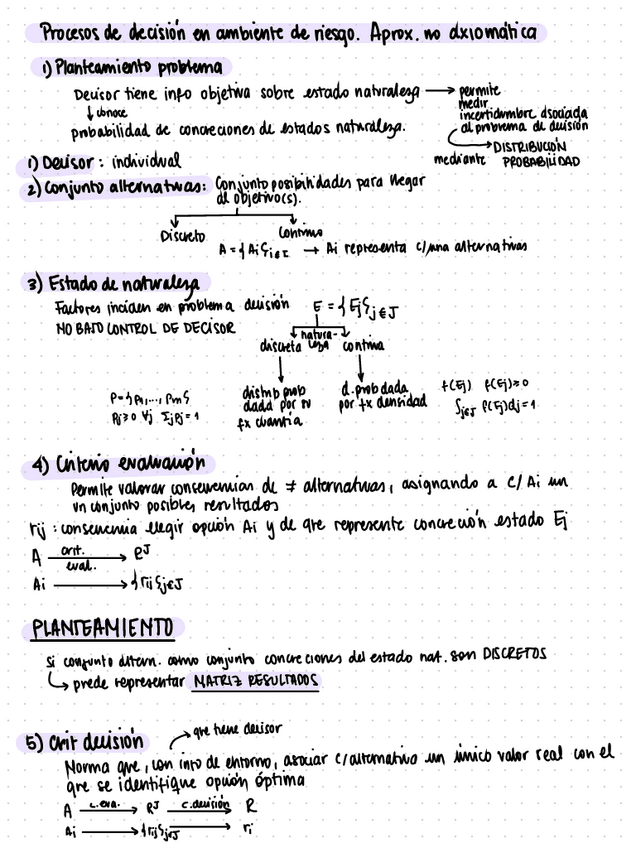 Procesos de decisión en ambiente de riesgo. Aprox. no axiomática
1) Planteamiento problema
Decisor tiene info objetiva sobre estado naturaleza → permite
medir
incertidumbre asociada
al problema de decisión
↓ conoce
probabilidad de concreciones de estados naturaleza.
→ DISTRIBUCIÓN
mediante PROBABILIDAD
1) Decisor: individual
2) Conjunto alternativas: Conjunto posibilidades para llegar
al objetivo(s).
Discreto Continuo
A = {Ai}i∈I → Ai representa c/una alternativas
3) Estado de naturaleza
Factores inciden en problema decisión E = {Ej}j∈J
NO BAJO CONTROL DE DECISOR
naturaleza
discreta continua
P = {p1,..., pm}
Pj≥0 ∀j Σj Pj = 1
distrib prob
dada por su
fx cuantía
d. prob dada
por fx densidad
f(Ej) f(Ej)≥0
∫j∈J f(Ej)dj = 1
4) Criterio evaluación
Permite valorar consecuencias de ≠ alternativas, asignando a c/Ai un
un conjunto posibles resultados
rij : consecuencia elegir opción Ai y de que represente concreción estado Ej
A crit. eval. → R^J
Ai → {rij}j∈J
PLANTEAMIENTO
Si conjunto altern. como conjunto concreciones del estado nat. son DISCRETOS
↳ puede representar MATRIZ RESULTADOS
5) Crit decisión → que tiene decisor
Norma que, con info de entorno, asociar c/alternativa un único valor real con el
que se identifique opción óptima
A c. eva. → R^J c. decisión → R
Ai → {rij}j∈J → ri